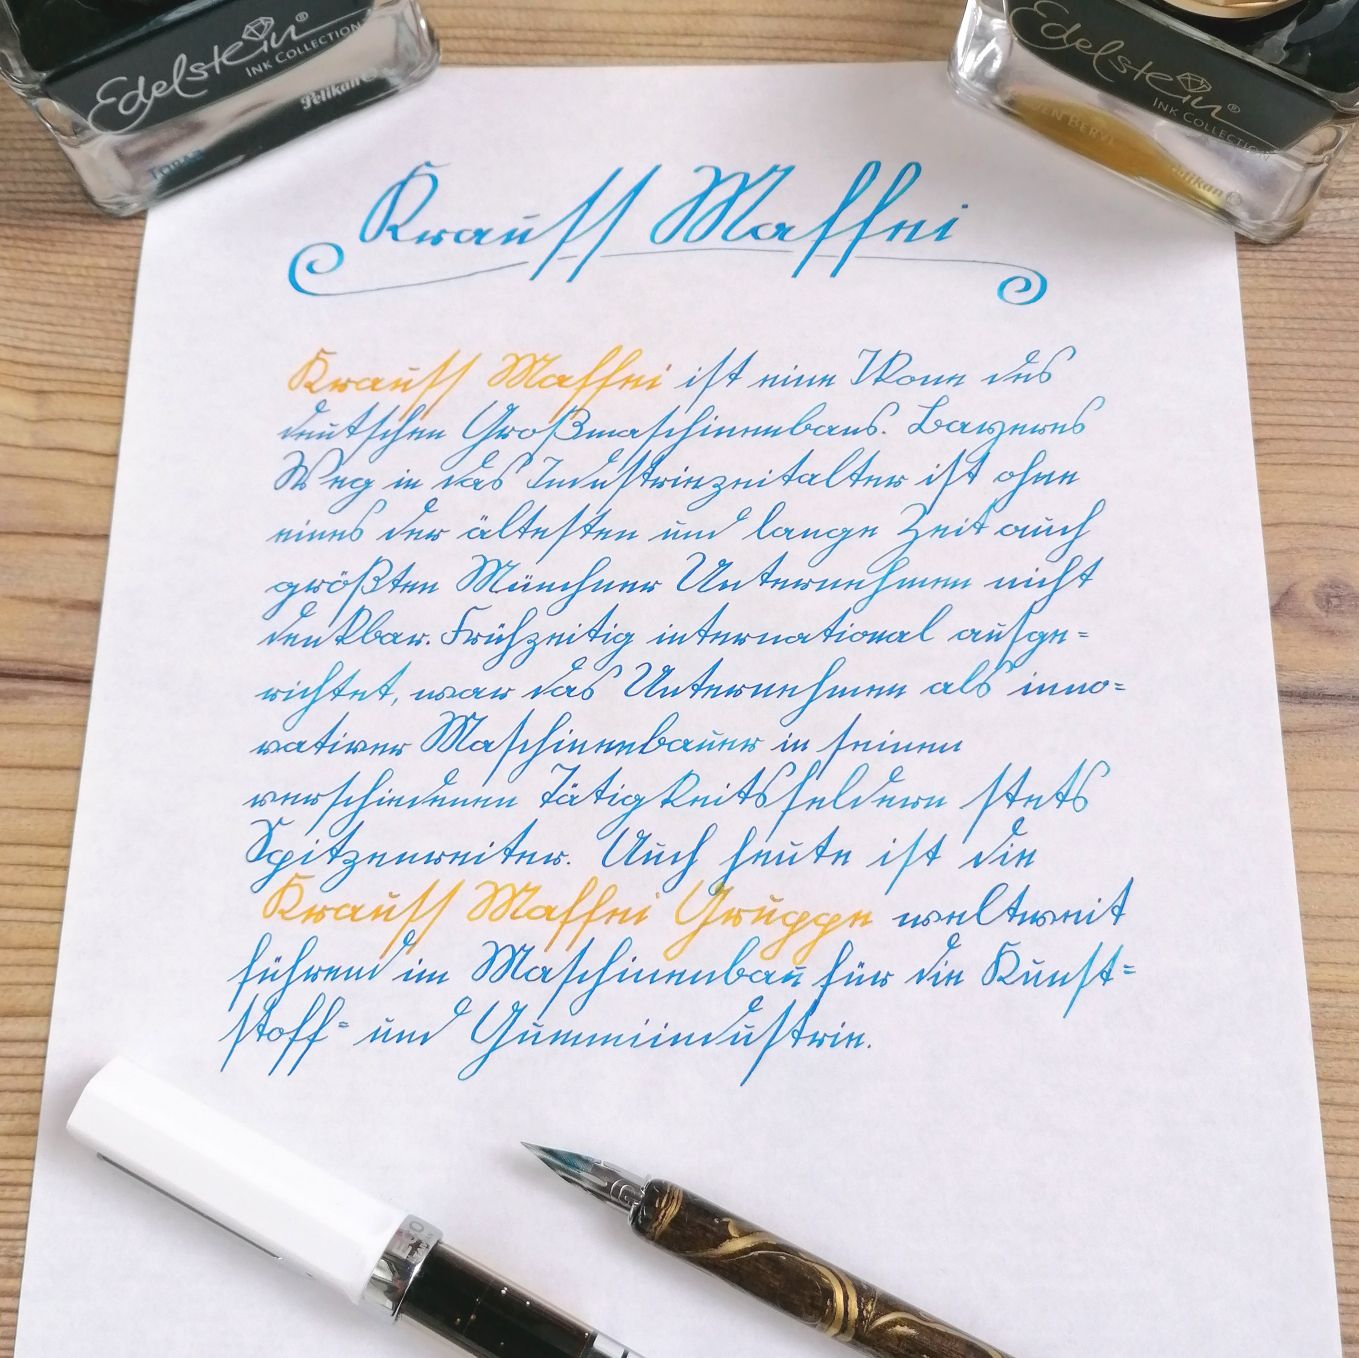 Edelstein®
INK COLLECTION
Pelikan
TOPAZ
Edelstein®
INK COLLECTION
BERYL
Pelikan
Krauss Maffei
Krauss Maffei ist eine Ikone des
deutschen Großmaschinenbaus. Bayerns
Weg in das Industriezeitalter ist ohne
eines der ältesten und lange Zeit auch
größten Münchner Unternehmen nicht
denkbar. Frühzeitig international ausge=
richtet, war das Unternehmen als inno=
vativer Maschinenbauer in seinen
verschiedenen Tätigkeitsfeldern stets
Spitzenreiter. Auch heute ist die
Krauss Maffei Gruppe weltweit
führend im Maschinenbau für die Kunst=
stoff= und Gummiindustrie.